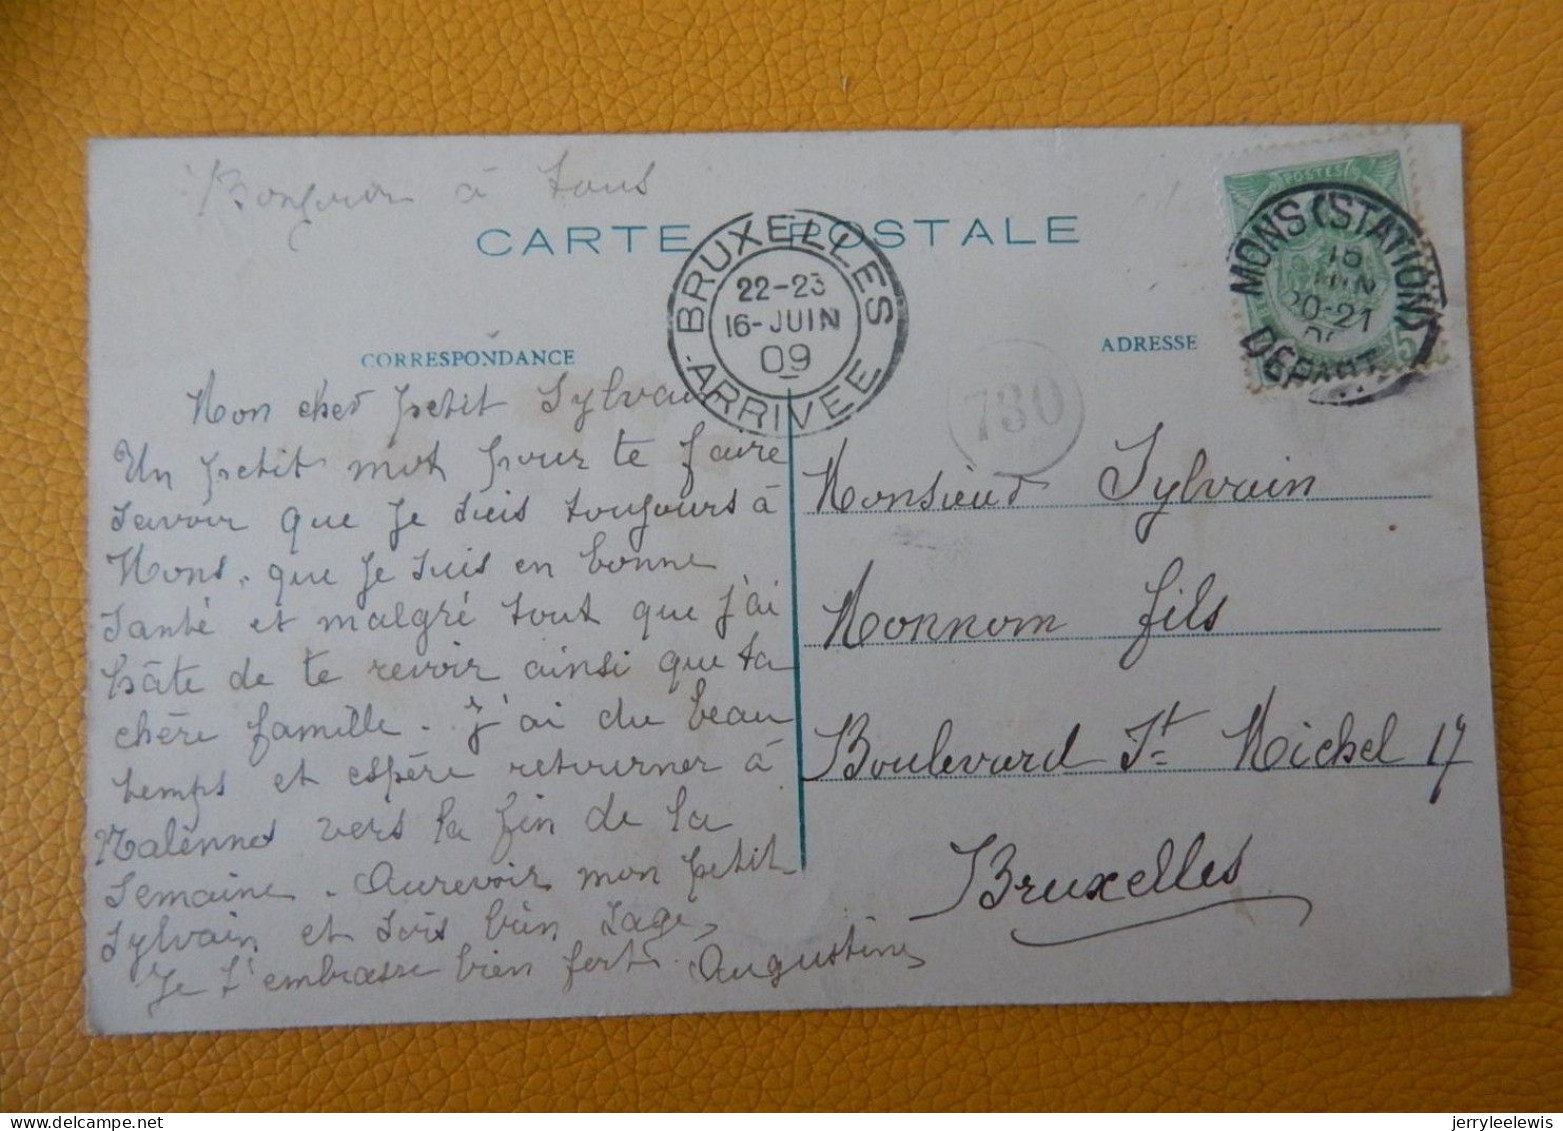 Bonjour à tous
CARTE POSTALE
BRUXELLES
22-23
16-JUIN
09
ARRIVEE
MONS (STATION)
16
JUIN
20-21
DEPART
POSTES
5
CORRESPONDANCE
ADRESSE
730
Mon cher petit Sylvain
Un petit mot pour te faire
savoir que je suis toujours à
Mons, que je suis en bonne
santé et malgré tout que j'ai
hâte de te revoir ainsi que ta
chère famille. J'ai du beau
temps et espère retourner à
Malènnes vers la fin de la
semaine. Aurevoir mon petit
Sylvain et sois bien sage,
Je t'embrasse bien fort. Augustine
Monsieur Sylvain
Monnom fils
Boulevard St Michel 17
Bruxelles
jerryleelewis